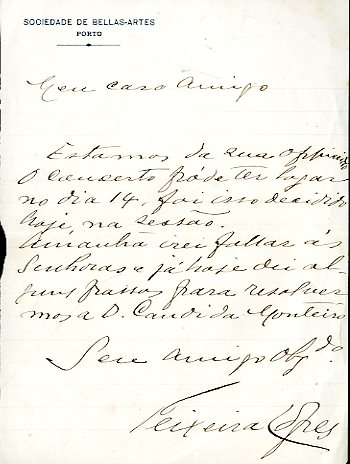 SOCIEDADE DE BELLAS-ARTES
PORTO
Meu caro Amigo
Estamos da sua oppinião
O concerto póde ter lugar
no dia 14, foi isso decidido
hoje, na sessão.
Amanhã irei fallar ás
Senhoras e já hoje dei al-
guns passos para resolver
mos a D. Candida Monteiro
Seu Amigo Obgdo.
Teixeira Lopes